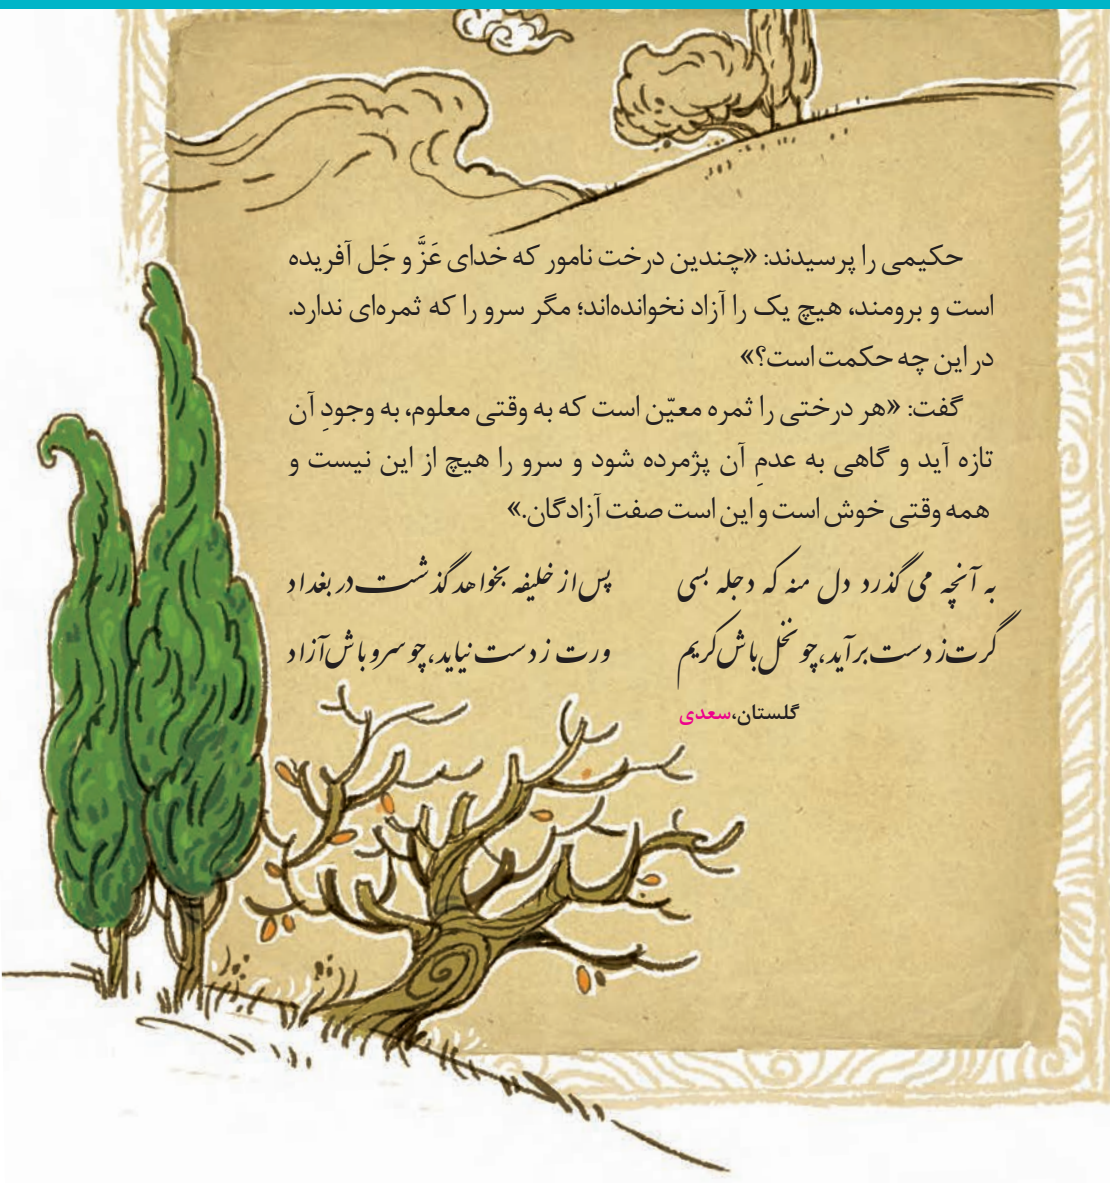 حکیمی را پرسیدند: «چندین درخت نامور که خدای عَزَّ و جَل آفریده
است و برومند، هیچ یک را آزاد نخوانده‌اند؛ مگر سرو را که ثمره‌ای ندارد.
در این چه حکمت است؟»
گفت: «هر درختی را ثمره معیّن است که به وقتی معلوم، به وجودِ آن
تازه آید و گاهی به عدمِ آن پژمرده شود و سرو را هیچ از این نیست و
همه وقتی خوش است و این است صفت آزادگان.»
به آنچه می گذرد دل منه که دجله بسی پس از خلیفه بخواهد گذشت در بغداد
گرت ز دست برآید، چو نخل باش کریم ورت ز دست نیاید، چو سرو باش آزاد
گلستان، سعدی